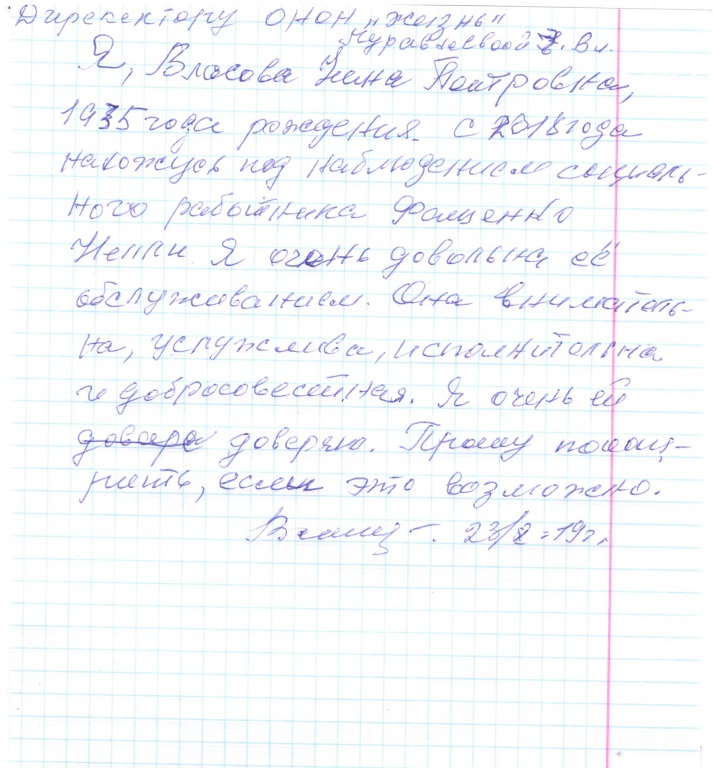 Директору ОНОН "Жизнь"
Муравьевой Е. Вл.
Я, Власова Нина Пайтровна,
1935 года рождения. С 2018 года
нахожусь под наблюдением социаль-
ного работника Фащенко
Нелли. Я очень довольна её
обслуживанием. Она вниматель-
на, услужлива, исполнительна
и добросовестная. Я очень ей
доверяю. Прошу поощ-
рить, если это возможно.
19г.